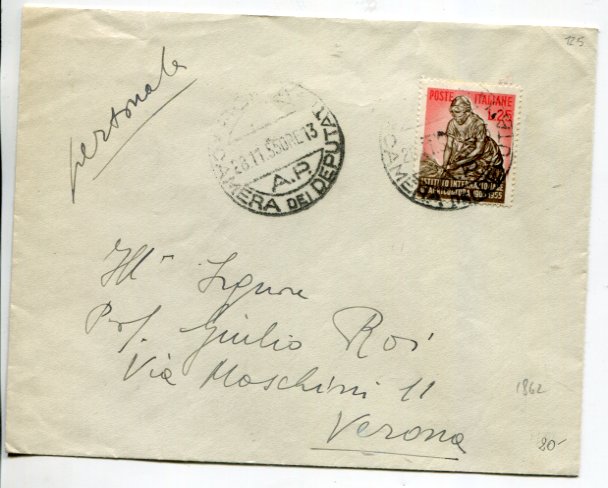 125
personale
28.11.55 ORE 13
A.P.
CAMERA DEI DEPUTATI
POSTE ITALIANE
L.25
ISTITUTO INTERNAZIONALE
AGRICOLTURA 1905-1955
CAMERA
Ill.
Signore
Prof. Giulio Roi
Via Moschini 11
Verona
1862
80-